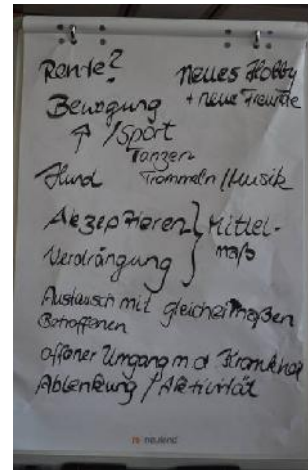 Rente?
neues Hobby
+ neue Freunde
Bewegung
↗ /Sport
Tanzen
Hund Trommeln/Musik
Akzeptieren } Mittel-
Verdrängung } maß
Austausch mit gleichermaßen
Betroffenen
offener Umgang m d Krankheit
Ablenkung / Aktivität
neuland